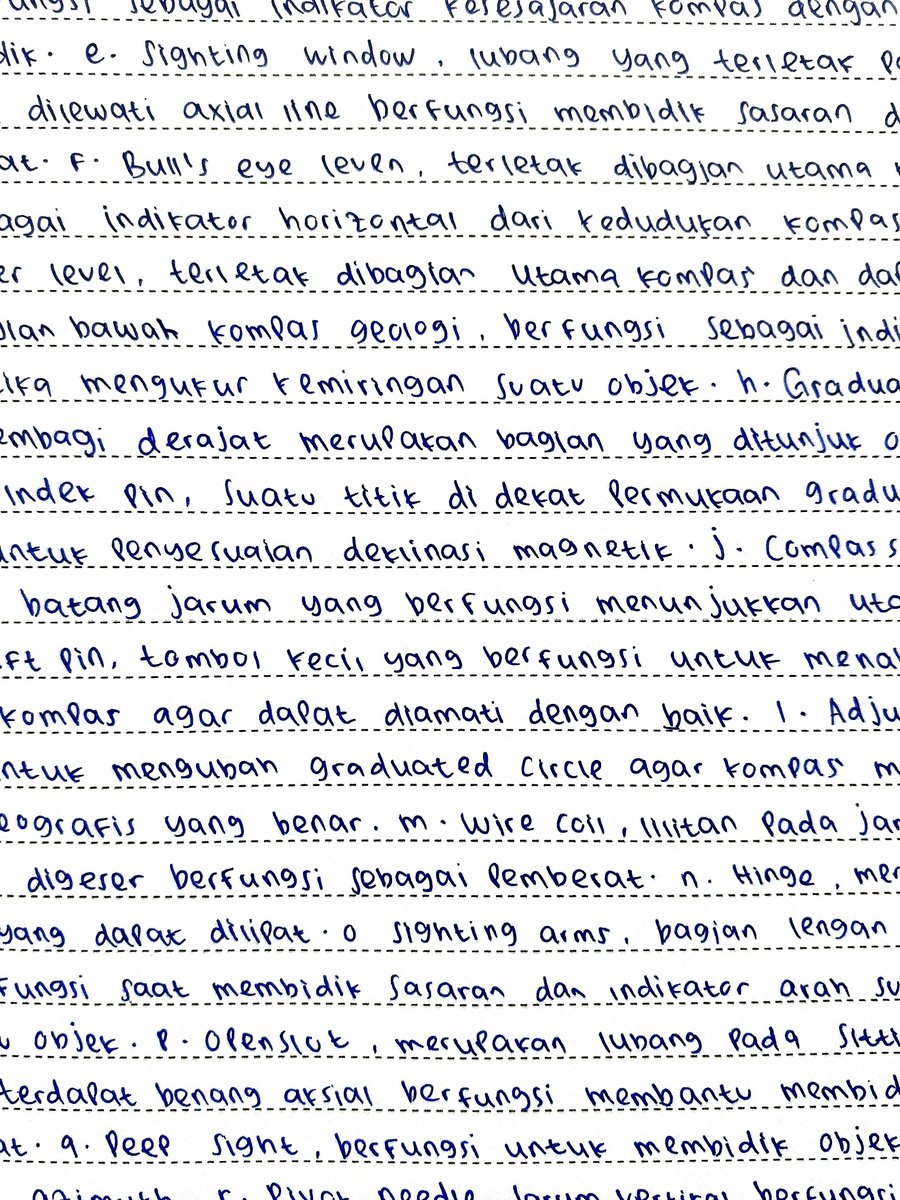 ungsi sebagai indikator kesesajaran kompas dengan
dik. e. Sighting window, lubang yang terletak p
dilewati axial line berfungsi membidik sasaran d
at. f. Bull's eye leven, terletak dibagian utama
agai indikator horizontal dari kedudukan kompas
er level, terletak dibagian utama kompas dan da
gian bawah kompas geologi, berfungsi sebagai indi
tika mengukur kemiringan suatu objek. h. Gradua
embagi derajat merupakan bagian yang ditunjuk o
Index pin, suatu titik di dekat permukaan gradu
untuk penyesuaian deklinasi magnetik. j. Compass
batang jarum yang berfungsi menunjukkan uta
ft pin, tombol kecil yang berfungsi untuk mena
kompas agar dapat diamati dengan baik. l. Adju
ntuk mengubah graduated circle agar kompas m
eografis yang benar. m. Wire coil, lilitan pada jar
digeser berfungsi sebagai pemberat. n. Hinge, mer
yang dapat dilipat. o sighting arms, bagian lengan
fungsi saat membidik sasaran dan indikator arah su
u objek. p. Openslot, merupakan lubang pada sitti
terdapat benang aksial berfungsi membantu membid
at. q. Peep sight, berfungsi untuk membidik objek
azimuth. r. Pivot needle, jarum vertikal berfungsi